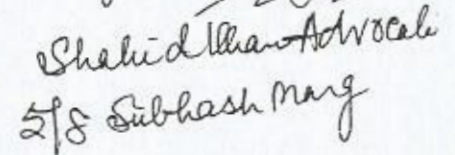 Shahid Khan Advocate
5/8 Subhash Marg